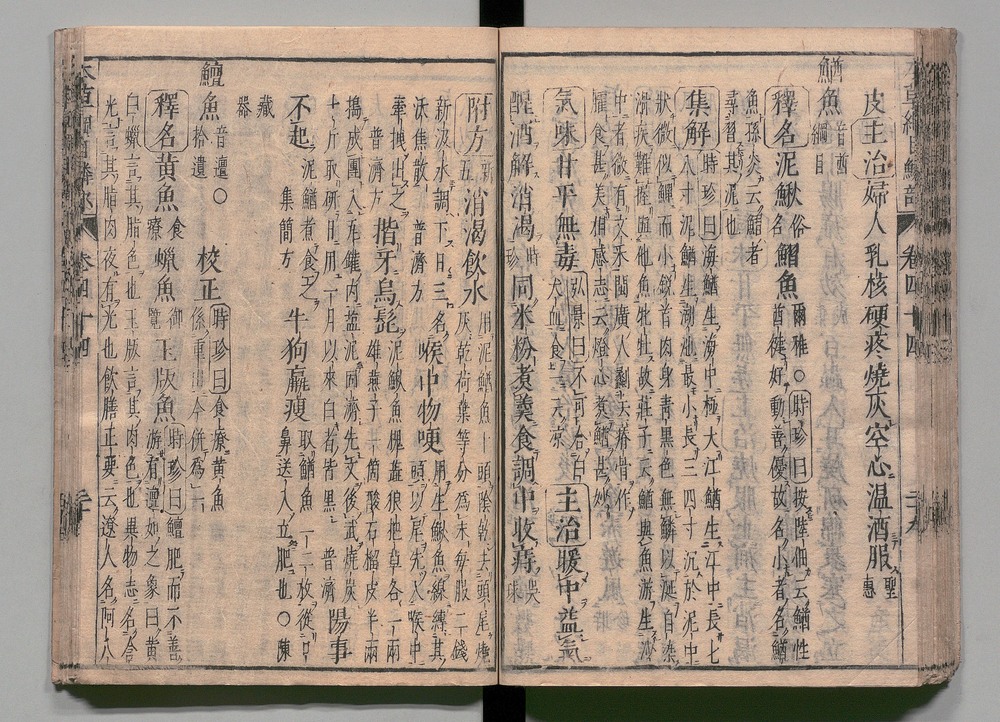 皮主治婦人乳核硬疼燒灰空心温酒服聖惠
鰌魚音酋綱目
釋名泥鰍俗名鰼魚爾雅○時珍曰按陸佃云鰌性
酋健好動善優故名小者名鰌
魚孫炎云鰼者
尋習其泥也
集解時珍曰海鰌生海中極大江鰌生江中長七
八寸泥鰌生湖池最小長三四寸沉於泥中
狀微似鱓而小銳首肉身青黑色無鱗以涎自染
滑疾難握與他魚牝牡故莊子云鰌與魚游生沙
中者微有文采閩廣人劙去脊骨作
臛食甚美相感志云燈心煮鰌甚妙
氣味甘平無毒弘景曰不可合白
犬血食一云凉主治暖中益氣
醒酒解消渴時珍同米粉煮羹食調中收痔吳球
附方新五消渴飲水用泥鰌魚十頭陰乾去頭尾燒
灰乾荷葉等分爲末每服二錢
新汲水調下日三名
沃焦散普濟方喉中物哽用生鰍魚線縛其
頭以尾先入喉中
牽拽出之
普濟方揩牙烏髭泥鰍魚槐蘂狼把草各一兩
雄燕子一箇酸石榴皮半兩
搗成團入瓦罐內盐泥固濟先文後武燒炭
十斤取研日用一月以來白者皆黑普濟陽事
不起泥鰌煮食之
集簡方牛狗羸瘦取鰌魚一二枚從口
鼻送入立肥也○陳
藏
器
鱣魚音邅○
拾遺校正時珍曰食療黃魚
係重出今併爲一
釋名黄魚食療蠟魚御覽玉版魚時珍曰鱣肥而不善
游有邅如之象曰黄
曰蠟言其脂色也玉版言其肉色也異物志名含
光言其脂肉夜有光也飲膳正要云遼人名阿八
本草綱目鱗部 卷四十四 二十九
本草綱目鱗部 卷四十四 三十